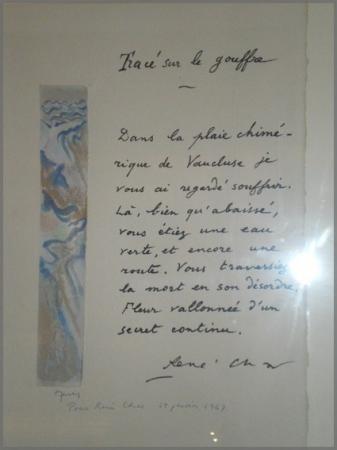 Tracé sur le gouffre
Dans la plaie chimé-
rique de Vaucluse je
vous ai regardé souffrir.
Là, bien qu'abaissé,
vous étiez une eau
verte, et encore une
route. Vous traversiez
la mort en son désordre.
Fleur vallonnée d'un
secret continu.
René Char
Pour René Char